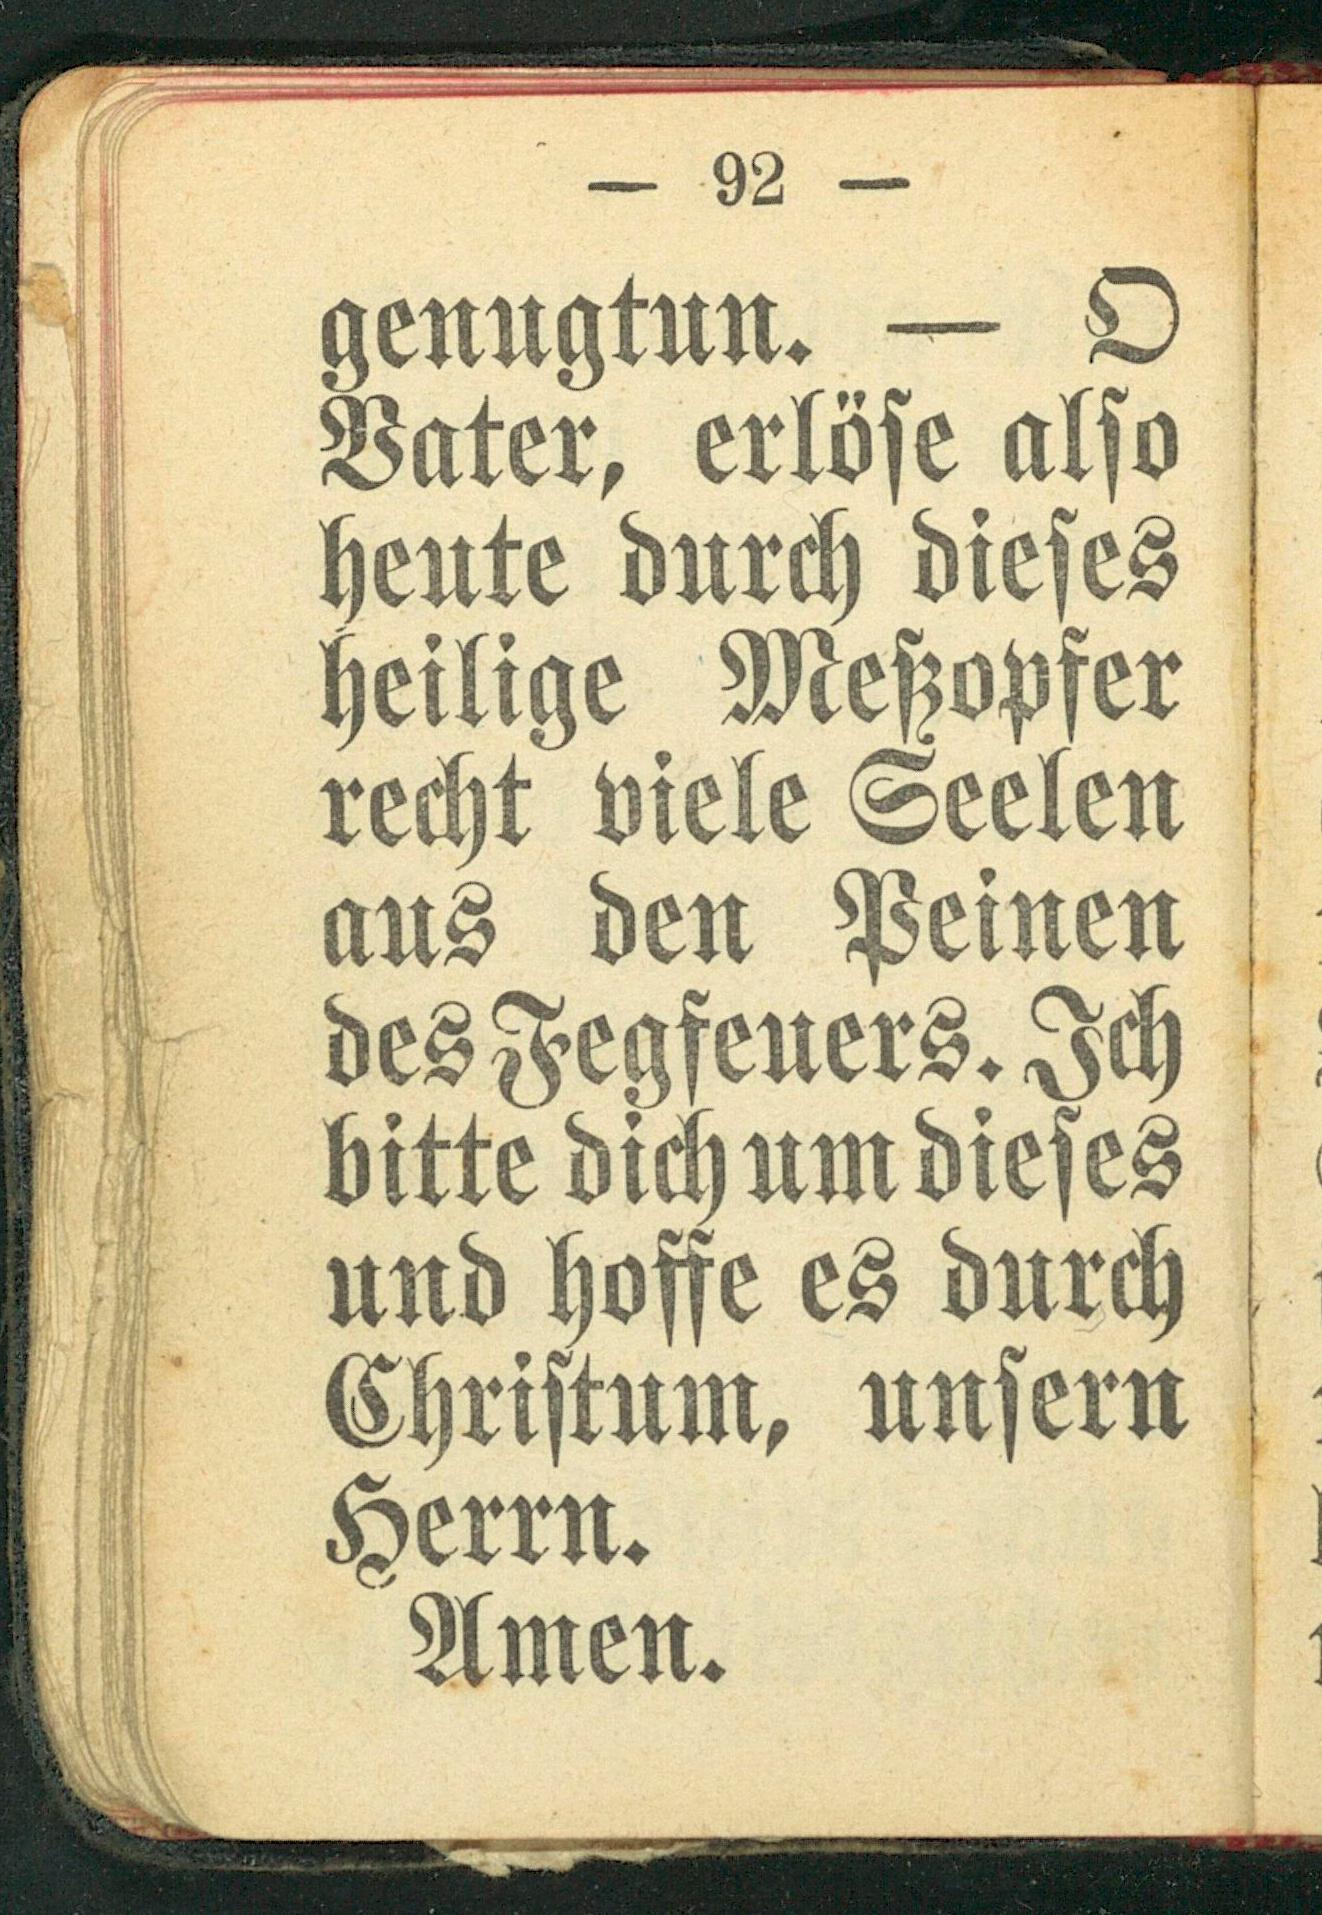 — 92 —
genugtun. — O
Vater, erlöse also
heute durch dieses
heilige Meßopfer
recht viele Seelen
aus den Peinen
des Fegfeuers. Ich
bitte dich um dieses
und hoffe es durch
Christum, unsern
Herrn.
Amen.